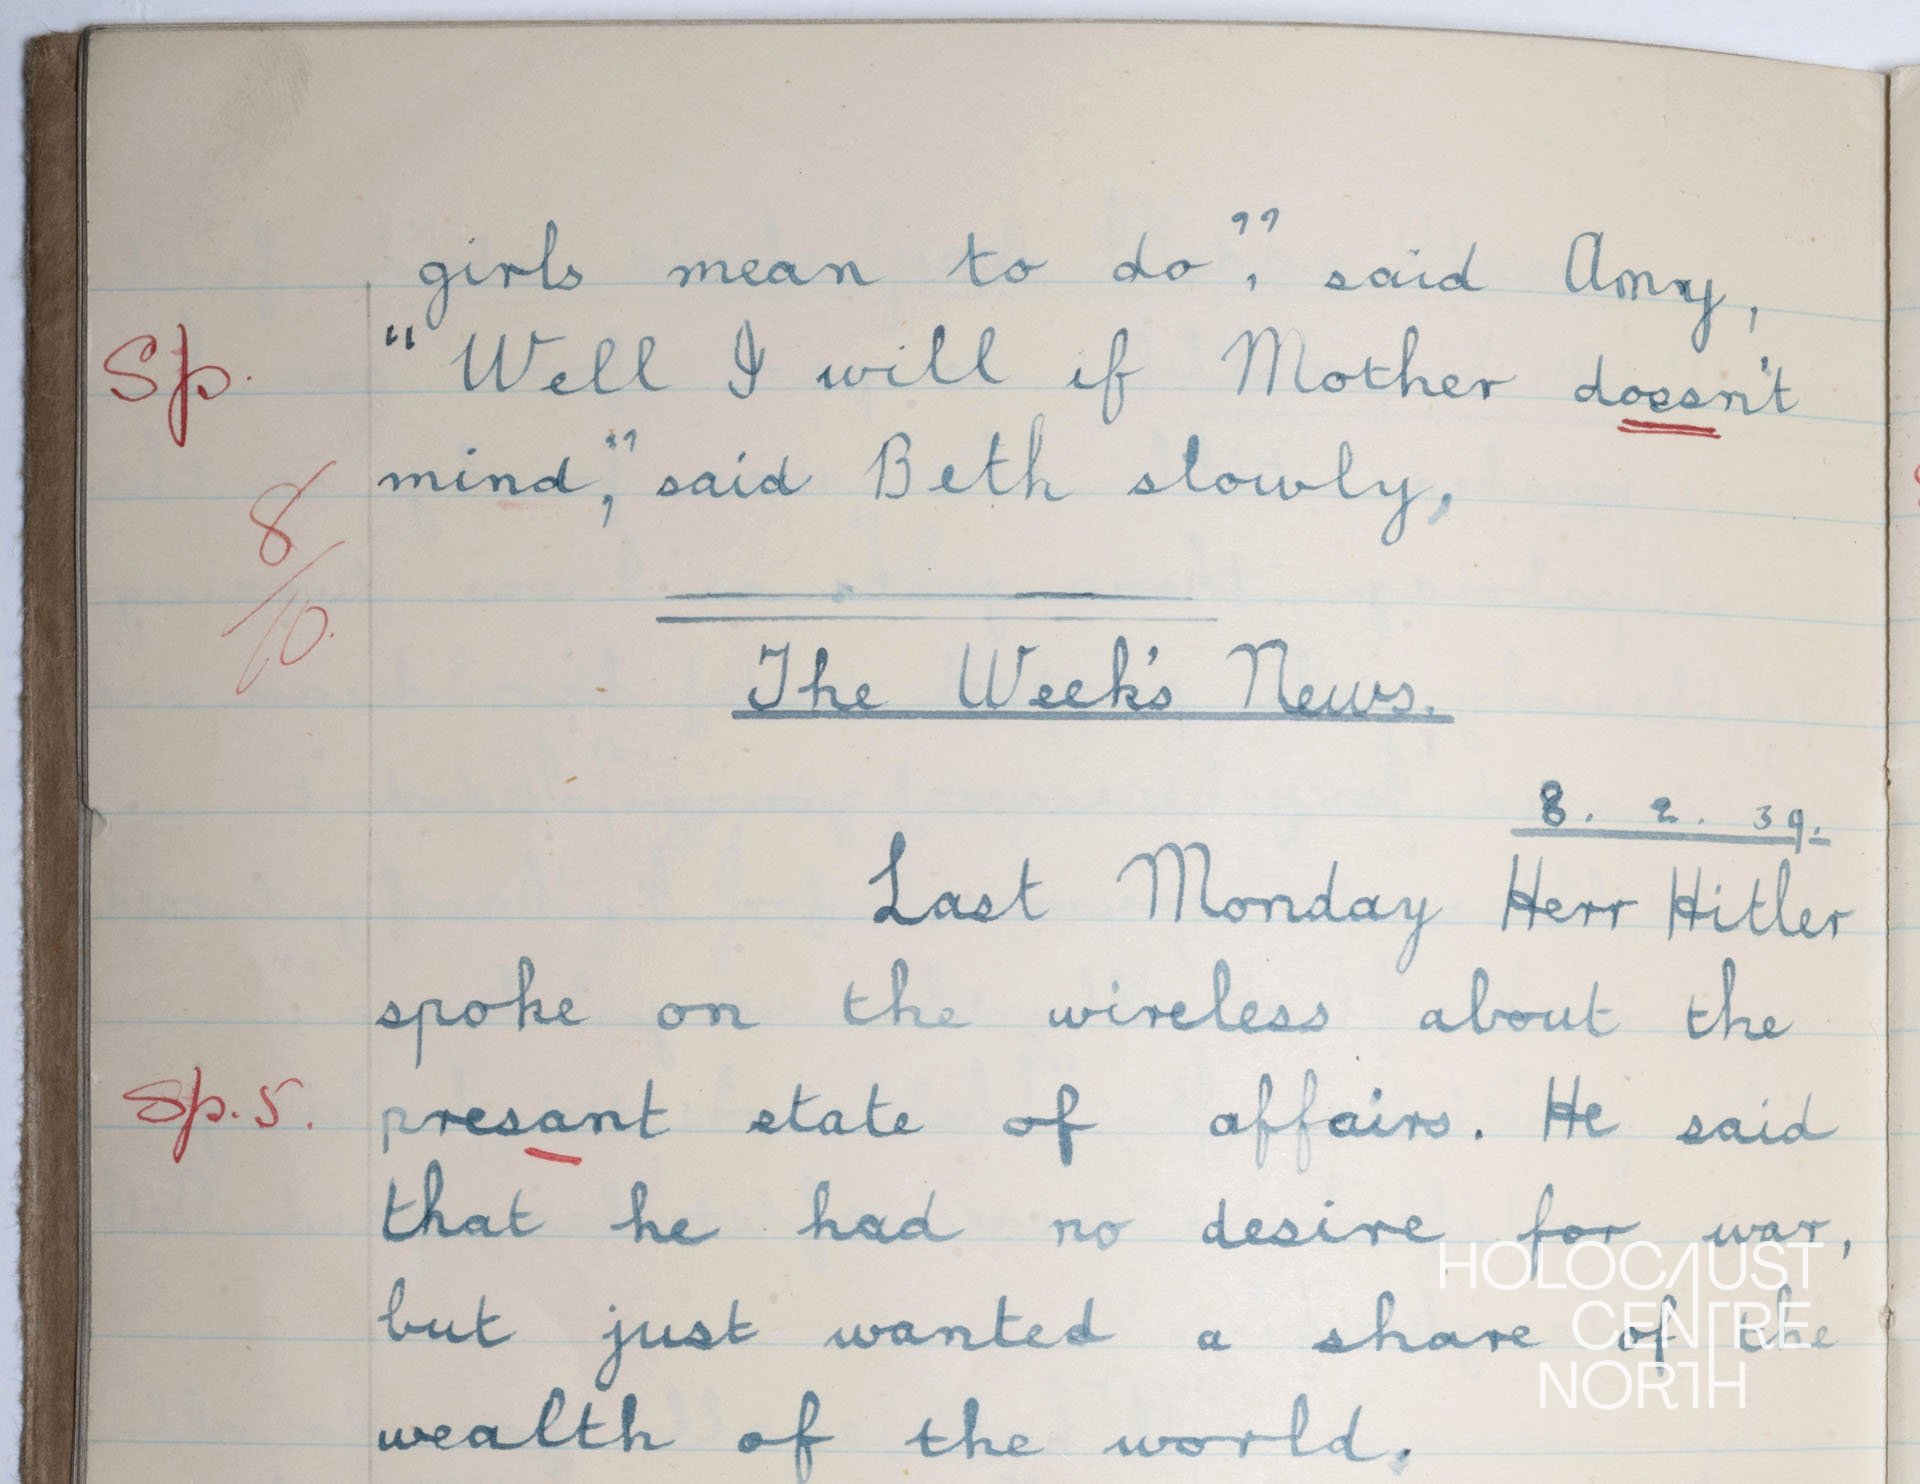 girls mean to do", said Amy,
Sp. "Well I will if Mother doesn't
mind," said Beth slowly,
8/10.
The Week's News.
8. 2. 39.
Last Monday Herr Hitler
spoke on the wireless about the
Sp. 5. presant state of affairs. He said
that he had no desire for war,
but just wanted a share of the
wealth of the world.
HOLOCAUST
CENTRE
NORTH